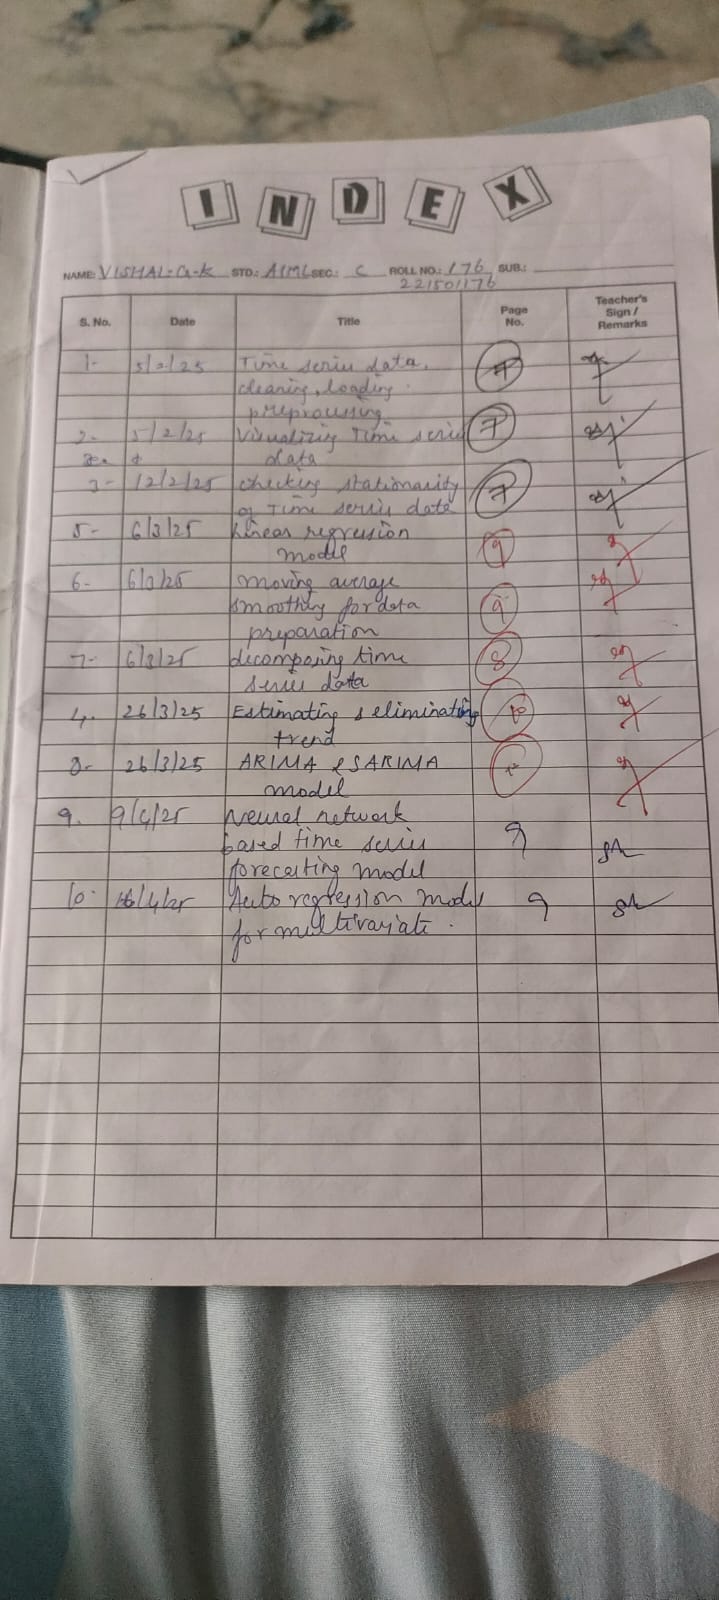 INDEX
NAME: VISHAL.G.K STD.: AIML SEC.: C ROLL NO.: 176 SUB.:
221501176
S. No. Date Title Page No. Teacher's Sign / Remarks
1- 5/2/25 Time series data,
cleaning, loading
preprocessing
2- 5/2/25 Visualizing Time series
data
3- 12/2/25 checking stationarity
of Time series data
5- 6/3/25 Linear regression
model 9
6- 6/3/25 moving average
smoothing for data 9
preparation
7- 6/3/25 decomposing time 8
series data
4. 26/3/25 Estimating & eliminating
trend
8- 26/3/25 ARIMA & SARIMA
model
9. 9/4/25 Neural network
based time series 9
forecasting model
10. 16/4/25 Auto regression model 9
for multivariate.